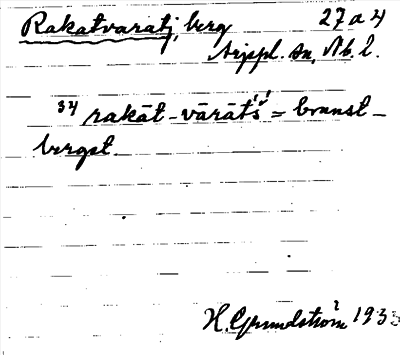 Rakatvaratj, berg 27 a 4
Arjepl. sn, Nb. l.
34 rakāt-vārātš́ = brunst-
berget.
H. Grundström 1933